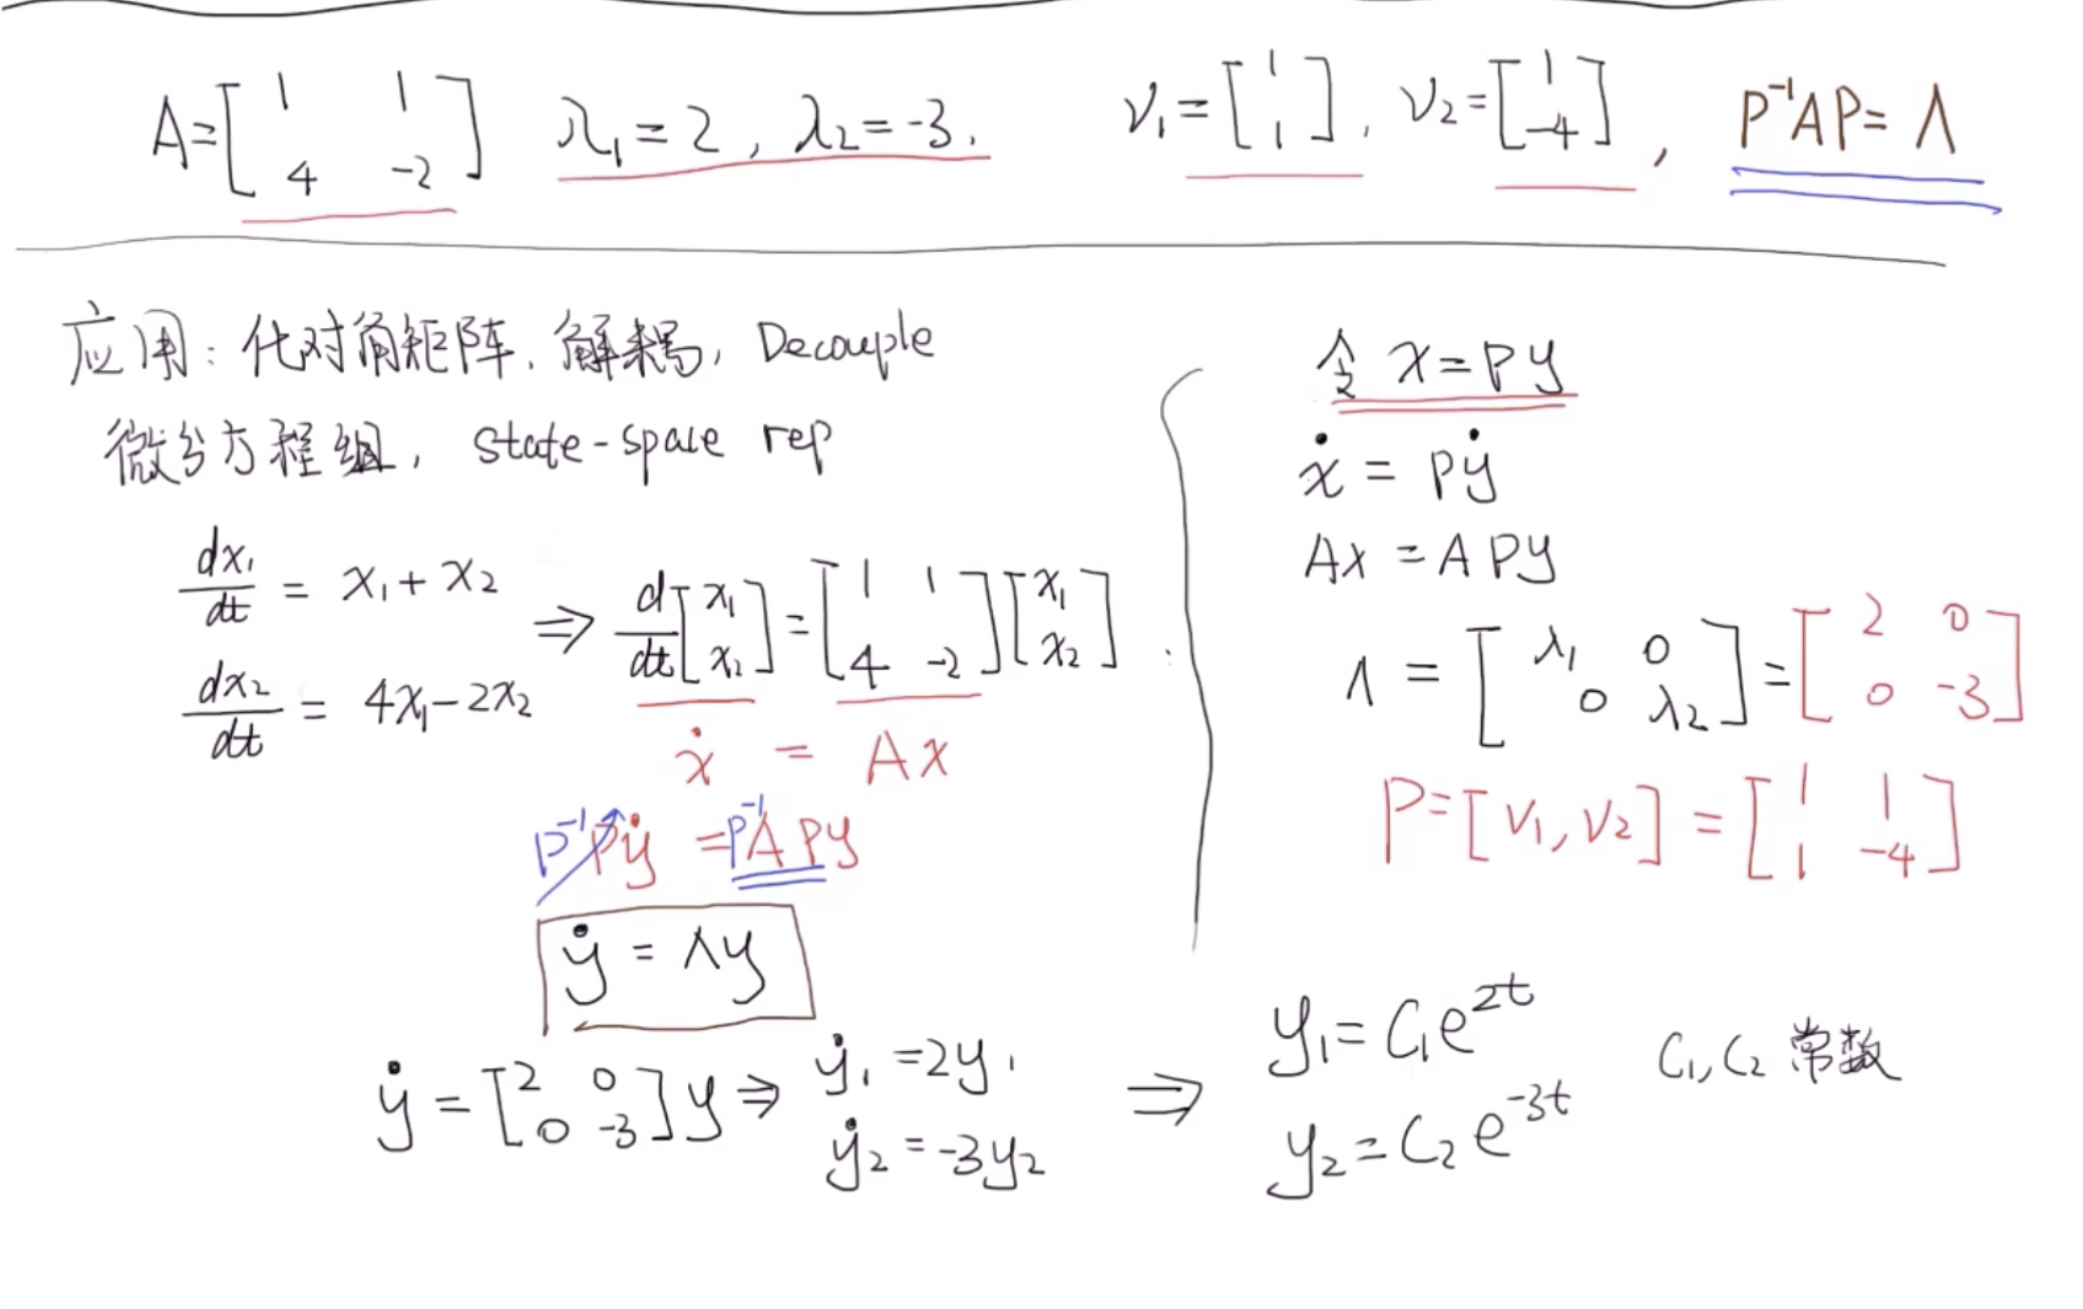 A = [1 1; 4 -2] λ₁ = 2, λ₂ = -3. ν₁ = [1; 1], ν₂ = [1; -4], P⁻¹AP = Λ
应用: 化对角矩阵, 解耦, Decouple
微分方程组, state-space rep
dx₁/dt = x₁ + x₂
dx₂/dt = 4x₁ - 2x₂
⇒ d/dt [x₁; x₂] = [1 1; 4 -2] [x₁; x₂]
ẋ = Ax
P⁻¹Pẏ = P⁻¹APy
ẏ = Λy
ẏ = [2 0; 0 -3] y ⇒ ẏ₁ = 2y₁
ẏ₂ = -3y₂
令 x = Py
ẋ = Pẏ
Ax = APy
Λ = [λ₁ 0; 0 λ₂] = [2 0; 0 -3]
P = [ν₁, ν₂] = [1 1; 1 -4]
⇒ y₁ = C₁e²ᵗ
y₂ = C₂e⁻³ᵗ
C₁, C₂ 常数